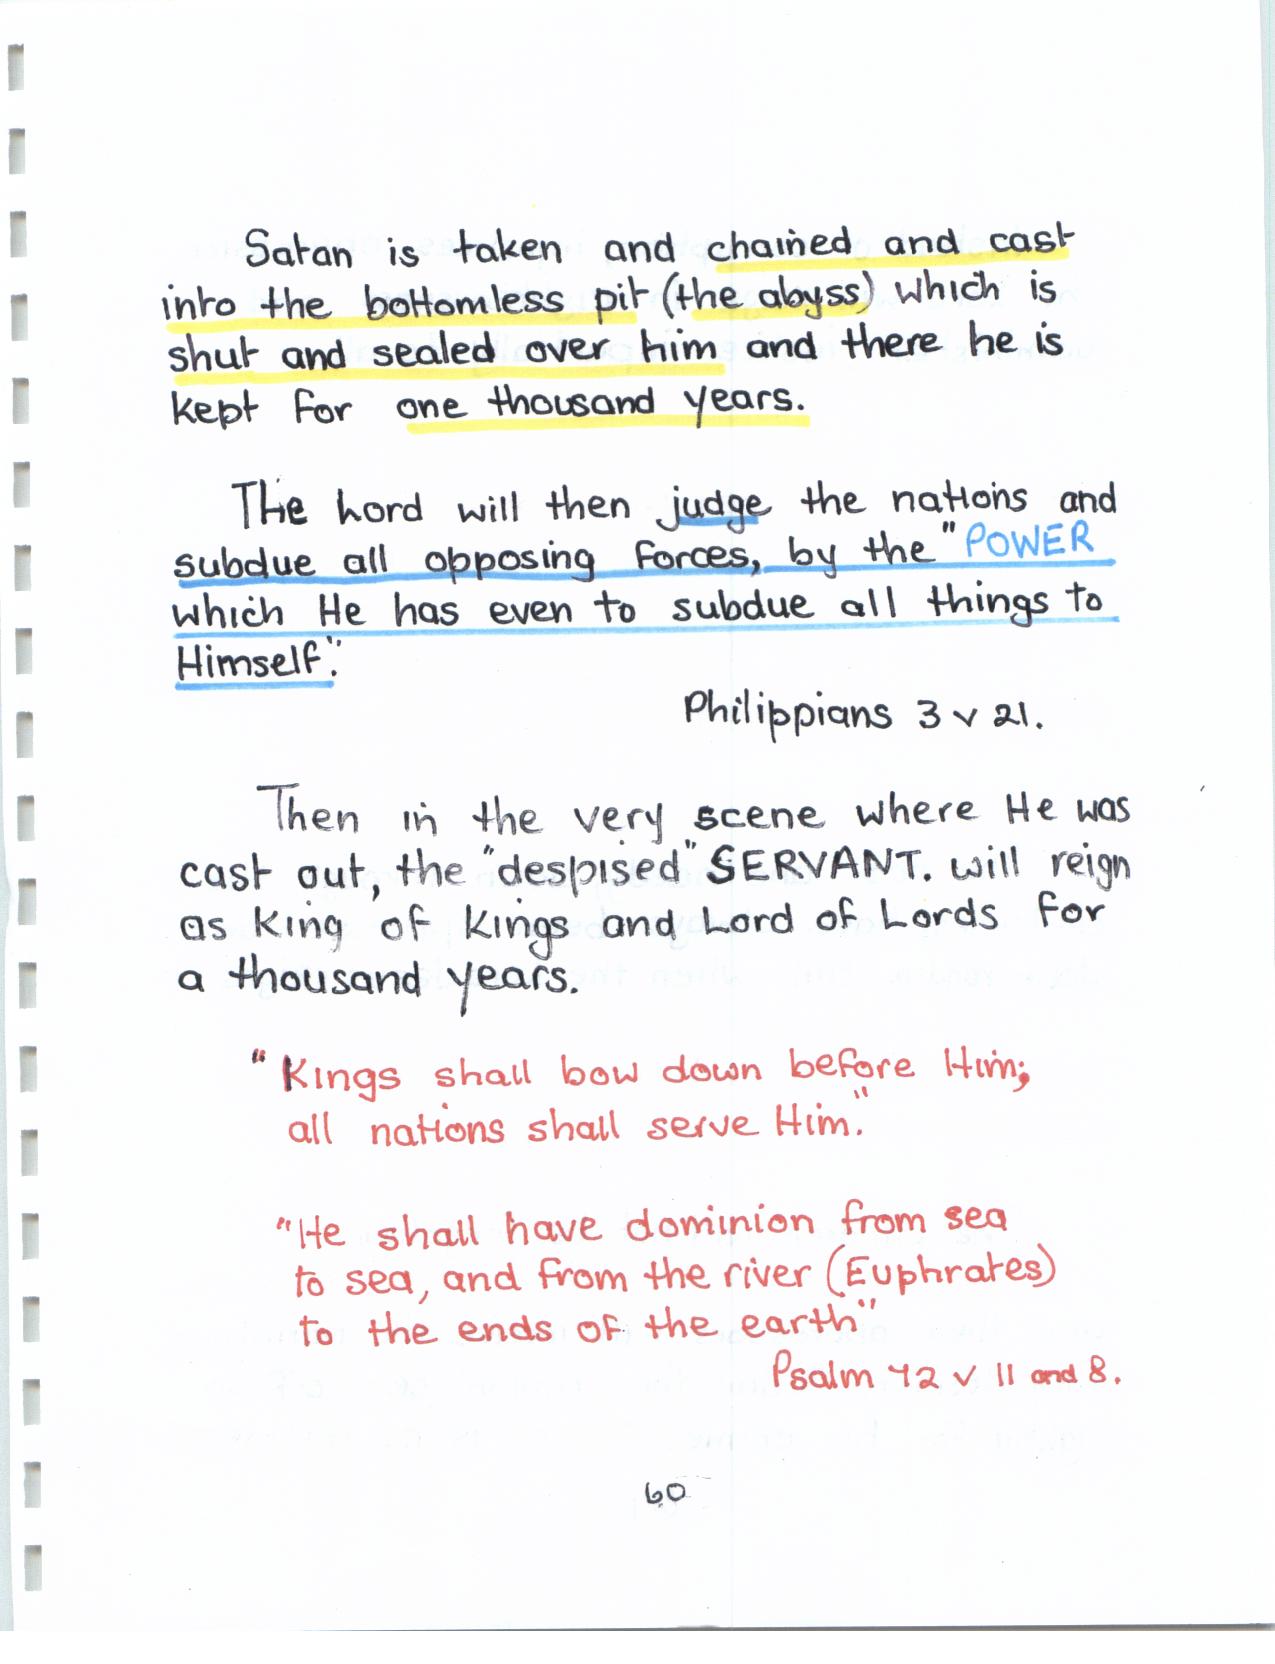 Satan is taken and chained and cast
into the bottomless pit (the abyss) which is
shut and sealed over him and there he is
kept for one thousand years.
The Lord will then judge the nations and
subdue all opposing forces, by the "POWER
which He has even to subdue all things to
Himself".
Philippians 3 v 21.
Then in the very scene where He was
cast out, the "despised" SERVANT. will reign
as King of Kings and Lord of Lords for
a thousand years.
"Kings shall bow down before Him;
all nations shall serve Him."
"He shall have dominion from sea
to sea, and from the river (Euphrates)
to the ends of the earth"
Psalm 72 v 11 and 8.
60